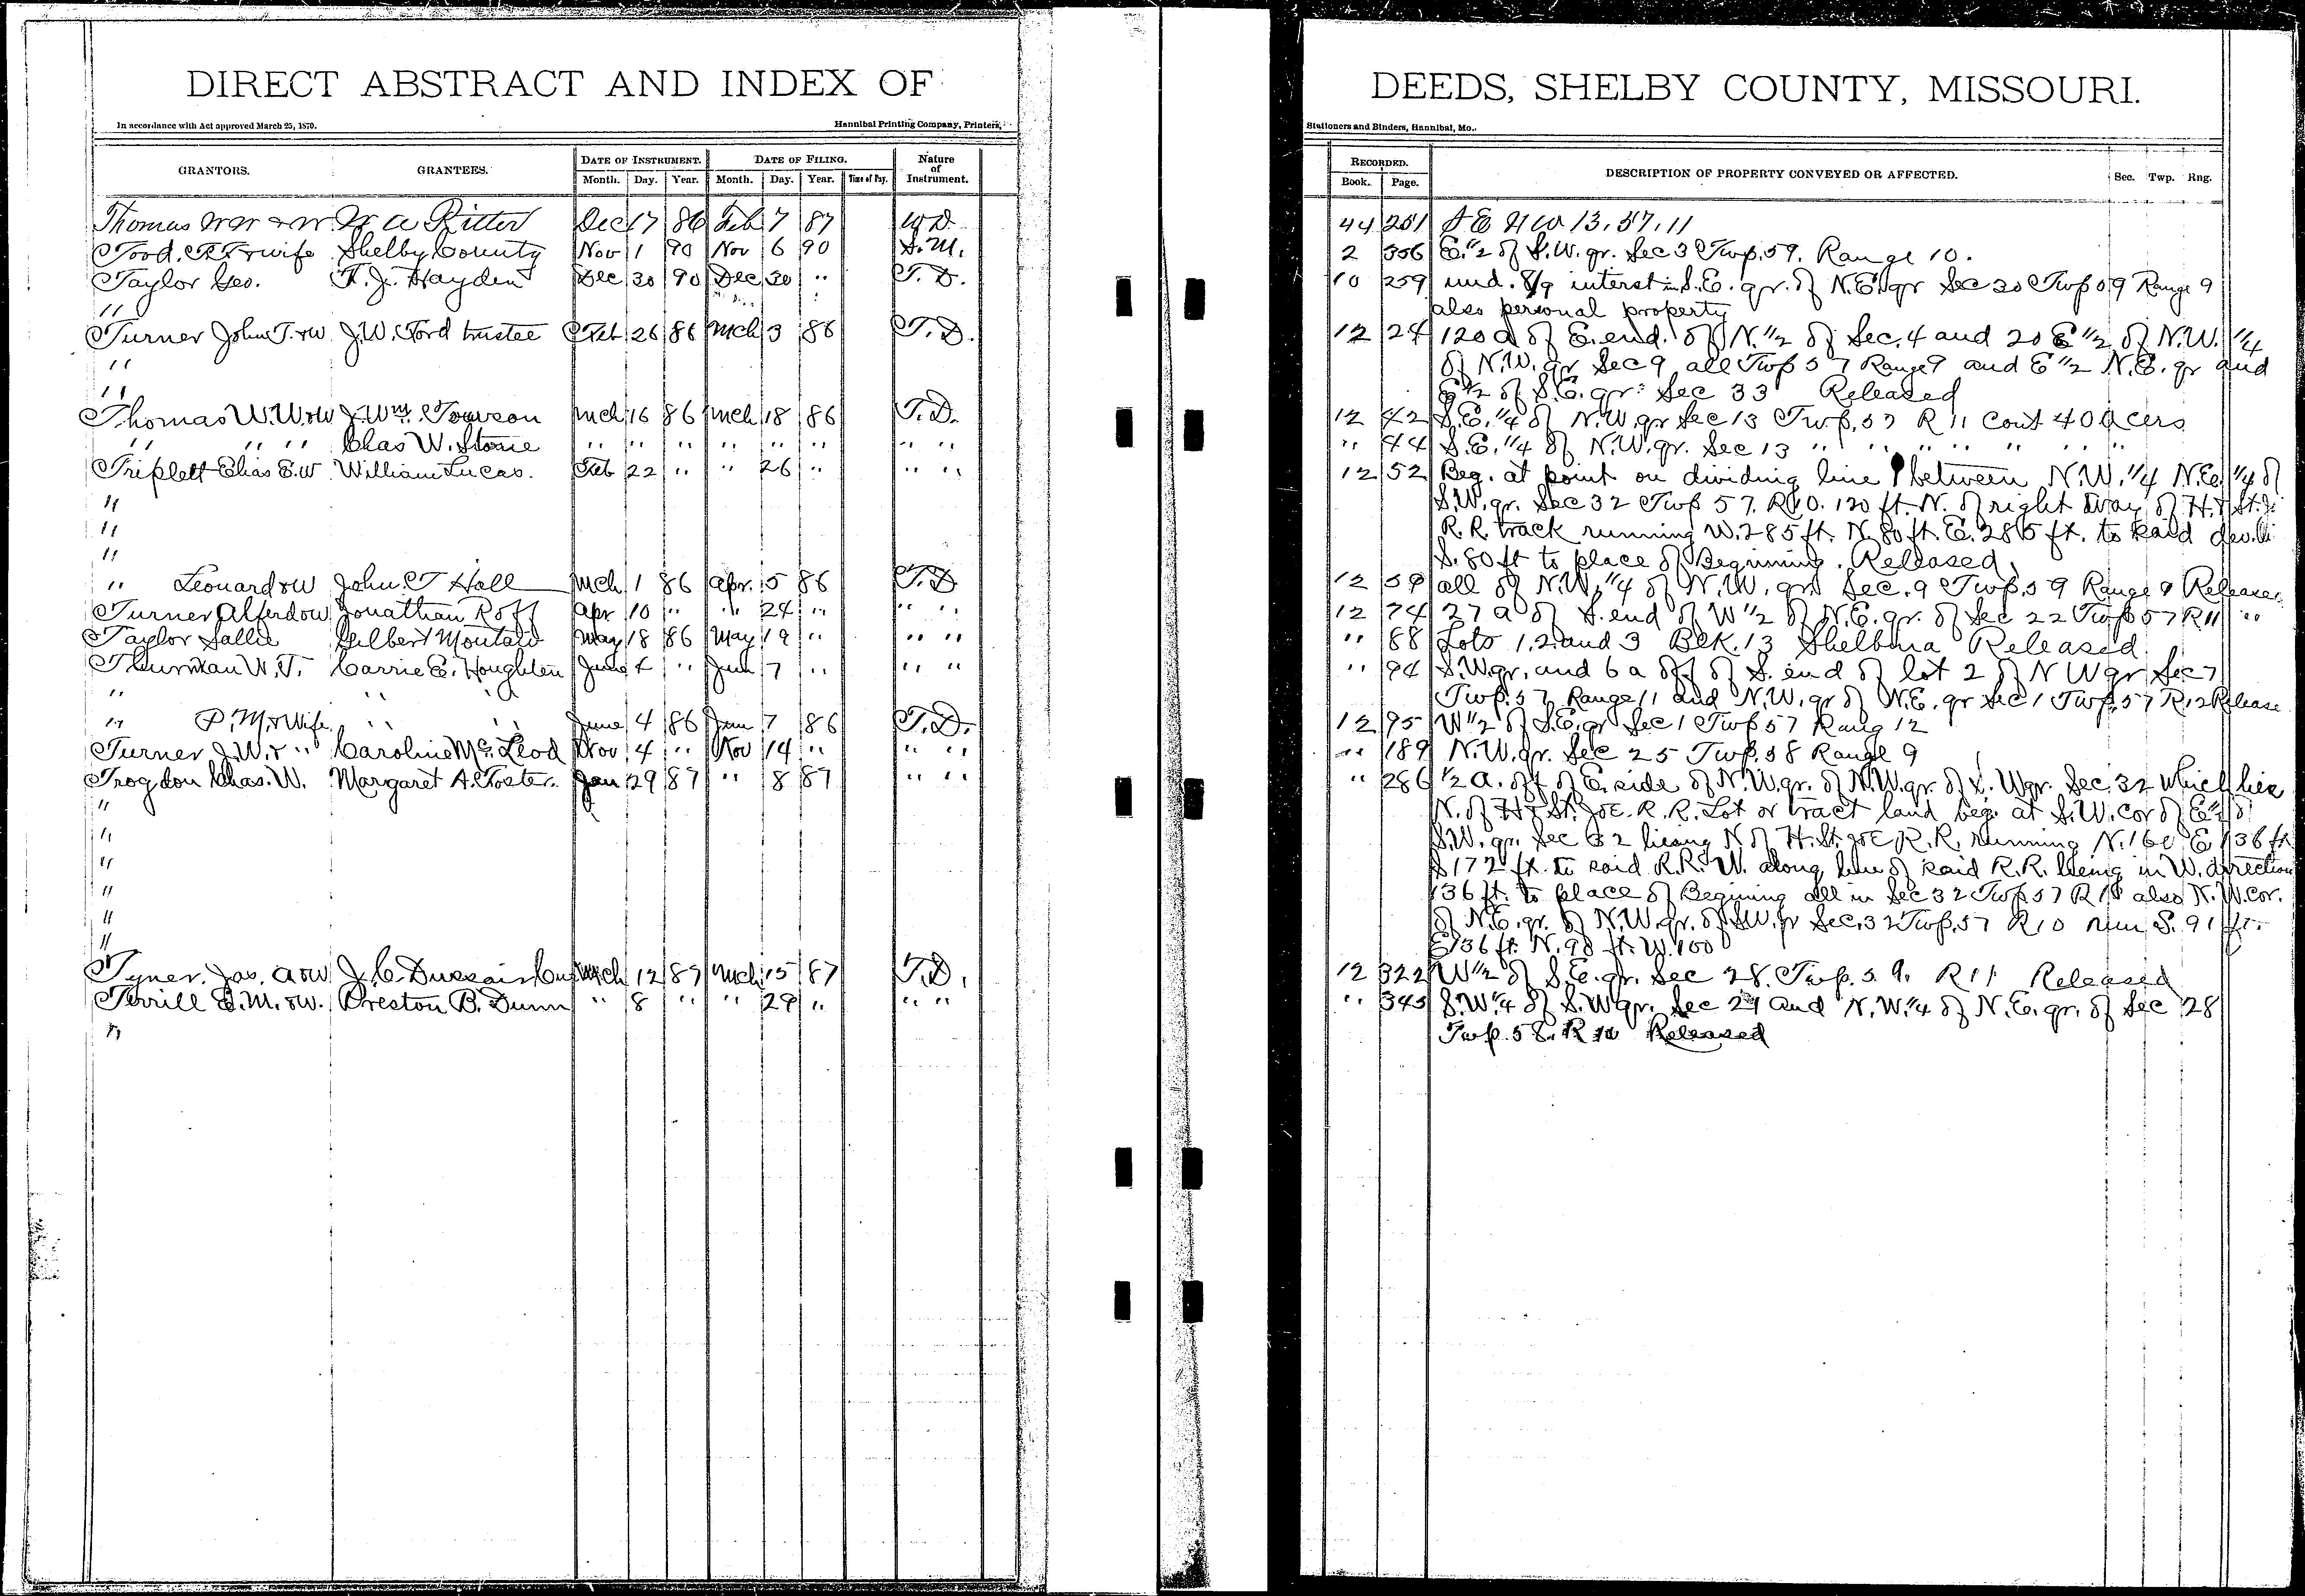 DIRECT ABSTRACT AND INDEX OF
In accordance with Act approved March 25, 1870.
Hannibal Printing Company, Printers,
GRANTORS. GRANTEES. DATE OF INSTRUMENT. DATE OF FILING. Nature of Instrument.
Month. Day. Year. Month. Day. Year. Time of Day.
Thomas W W & W W. A Ritter Dec 17 86 Feb 7 87 W D
Tood. R.F. & wife Shelby County Nov 1 90 Nov 6 90 S.M.
Taylor Geo. Hayden Dec 30 90 Dec 30 " T.D.
"
Turner John T. & W J.W. Ford trustee Feb 26 86 Mch 3 86 T.D.
"
"
Thomas W.W. & W J. Wm. Towson Mch 16 86 Mch 18 86 T.D.
" " " Chas W. Stone " " " " " " " "
Triplett Elias E. W William Lucas. Feb 22 " " 26 " " "
"
"
"
" Leonard & W John T Hall Mch 1 86 Apr. 5 86 T.D
Turner Alferd & W Jonathan Roff Apr 10 " " 24 " " "
Taylor Sallie Gilbert Moutaid May 18 86 May 19 " " "
Thurman W.T. Carrie E. Houghten June 4 " June 7 " " "
"
" P.M. & Wife " " June 4 86 Jun 7 86 T.D.
Turner J.W. & " Caroline Mc. Leod Nov 4 " Nov 14 " " "
Trogdon Chas. W. Margaret A. Foster. Jan 29 87 " 8 87 " "
"
"
"
"
"
"
Tyner. Jas. A & W J.C. Mch 12 87 Mch 15 87 T.D.
Terrill E.M. & W. Preston B. Dunn " 8 " " 29 " " "
"
DEEDS, SHELBY COUNTY, MISSOURI.
Stationers and Binders, Hannibal, Mo.
RECORDED. DESCRIPTION OF PROPERTY CONVEYED OR AFFECTED. Sec. Twp. Rng.
Book. Page.
44 251 S E N W 13, 57, 11
2 356 E. 1/2 of S.W. qr. Sec 3 Twp. 59. Range 10.
10 259 und. 8/9 interst in S.E. qr. of N.E. qr Sec 30 Twp 59 Range 9
also personal property
12 24 120 a of E. end. of N. 1/2 of Sec. 4 and 20 E 1/2 of N.W. 1/4
of N.W. qr Sec 9 all Twp 57 Range 9 and E 1/2 N.E. qr and
E 1/2 of S.E. qr. Sec 33 Released
12 42 S.E. 1/4 of N.W. qr Sec 13 Twp. 57 R 11 Cont 40 Acers
" 44 S.E. 1/4 of N.W. qr. Sec 13 " " " " " "
12 52 Beg. at point on dividing line between N.W. 1/4 N.E. 1/4 of
S.W. qr. Sec 32 Twp 57. R 10. 120 ft. N. of right Way of H. & St. J.
R.R. track running W. 285 ft. N. 80 ft. E. 285 ft. to said dev. li
S. 80 ft to place of Beginning. Released
12 59 all of N.W. 1/4 of N.W. qr. Sec. 9 Twp. 59 Range 9 Release
12 74 27 a of S. end of W 1/2 of N.E. qr. of Sec 22 Twp 57 R 11 "
" 88 Lots 1, 2, and 3 Blk. 13 Shelbina Released
" 94 S.W. qr. and 6 a off of S. end of lot 2 of N W qr Sec 7
Twp. 57 Range 11 and N.W. qr of N.E. qr Sec 1 Twp. 57 R. 12 Release
12 95 W 1/2 of S.E. qr Sec 1 Twp 57 Rang 12
" 189 N.W. qr. Sec 25 Twp. 58 Range 9
" 286 1/2 a. off of E. side of N.W. qr. of N.W. qr. of S. W qr. Sec. 32 which lies
N. of H & St. Joe. R.R. Lot or tract land beg. at S.W. cor of E 1/2 of
S.W. qr. Sec 32 lieing N of H. St. Joe R.R. running N. 160 E 136 ft
S 172 ft. to said R.R. W. along line of said R.R. being in W. direction
136 ft. to place of Begining all in Sec 32 Twp 57 R 10 also N.W. cor.
of N.E. qr. of N.W. qr. of S.W. qr Sec. 32 Twp. 57 R 10 run S. 91 ft.
E 136 ft. N. 98 ft. W. 100
12 322 W 1/2 of S.E. qr. Sec 28. Twp. 59. R 11 Released
" 345 S.W. 1/4 of S.W qr. Sec 21 and N.W. 1/4 of N.E. qr. of Sec 28
Twp. 58. R 10 Released